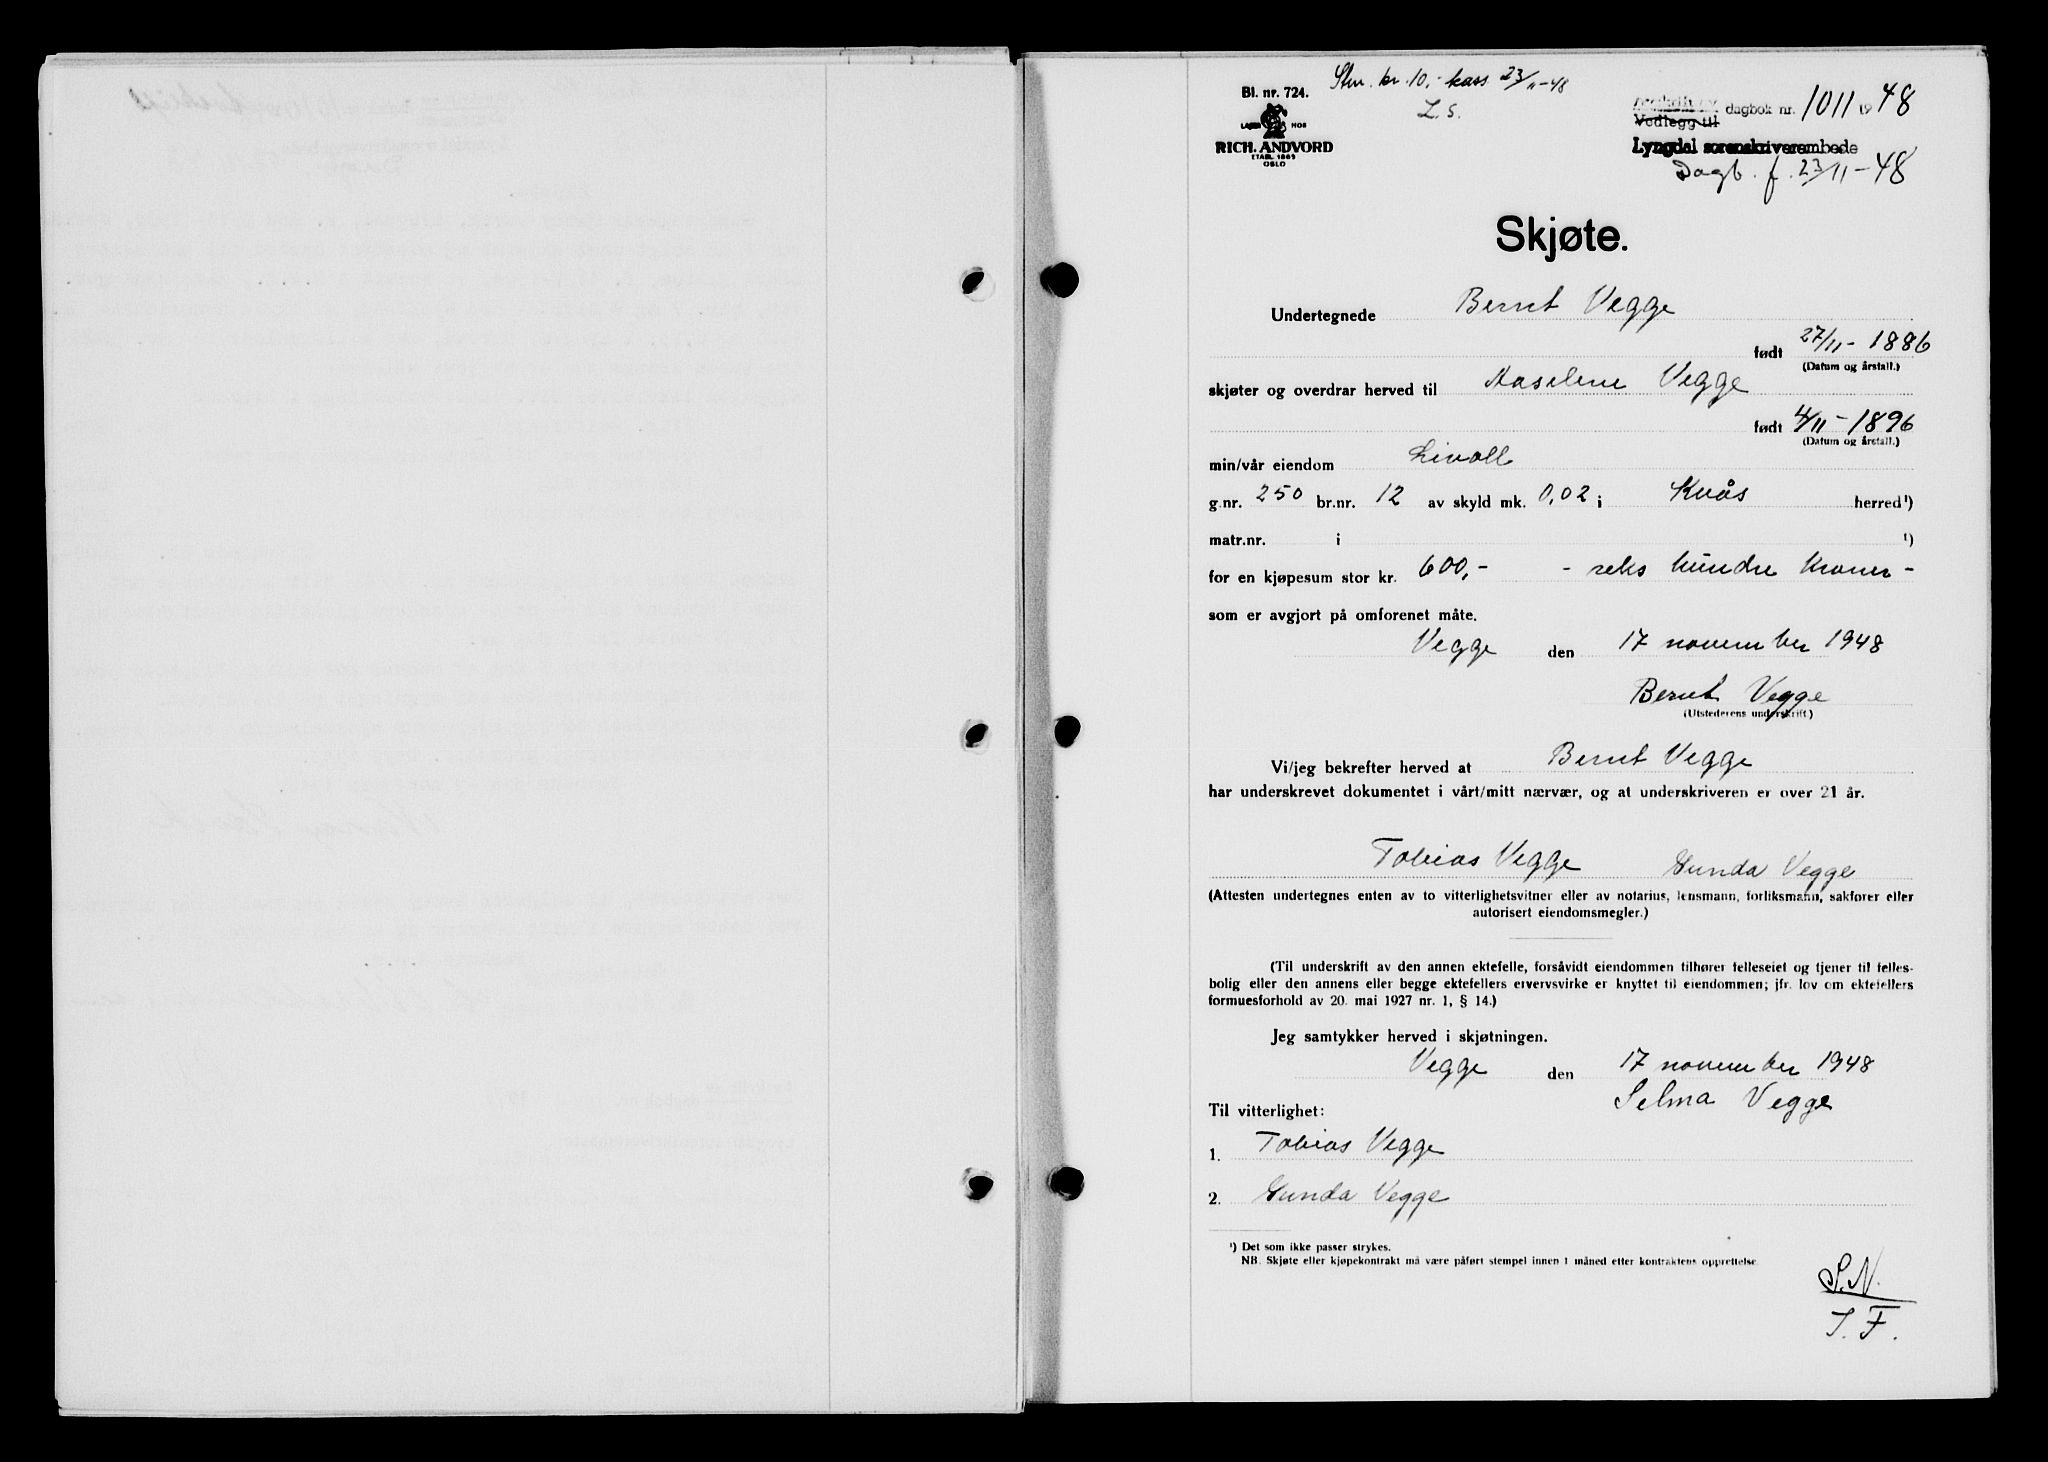 Stm. kr. 10,- kass 23/11-48
L. S.
Bl. nr. 724.
RICH. ANDVORD
ETABL. 1865
OSLO
Avskrift av
Vedlegg til
dagbok nr. 1011 1948
Lyngdal sorenskriverembede
Dagb. f. 23/11-48
Skjøte.
Undertegnede Bernt Vegge
født 27/11-1886
(Datum og årstall.)
skjøter og overdrar herved til Aaselene Vegge
født 4/11-1896
(Datum og årstall.)
min/vår eiendom Livoll
g.nr. 250 br.nr. 12 av skyld mk. 0,02 i Kvås herred¹)
matr.nr. i ¹)
for en kjøpesum stor kr. 600,- - seks hundre kroner -
som er avgjort på omforenet måte.
Vegge den 17 november 1948
Bernt Vegge
(Utstederens underskrift)
Vi/jeg bekrefter herved at Bernt Vegge
har underskrevet dokumentet i vårt/mitt nærvær, og at underskriveren er over 21 år.
Tobias Vegge Gunda Vegge
(Attesten undertegnes enten av to vitterlighetsvitner eller av notarius, lensmann, forliksmann, sakfører eller
autorisert eiendomsmegler.)
(Til underskrift av den annen ektefelle, forsåvidt eiendommen tilhører felleseiet og tjener til felles-
bolig eller den annens eller begge ektefellers ervervsvirke er knyttet til eiendommen; jfr. lov om ektefellers
formuesforhold av 20. mai 1927 nr. 1, § 14.)
Jeg samtykker herved i skjøtningen.
Vegge den 17 november 1948
Selma Vegge
Til vitterlighet:
1. Tobias Vegge
2. Gunda Vegge
¹) Det som ikke passer strykes.
NB. Skjøte eller kjøpekontrakt må være påført stempel innen 1 måned etter kontraktens opprettelse.
S.N.
J. F.